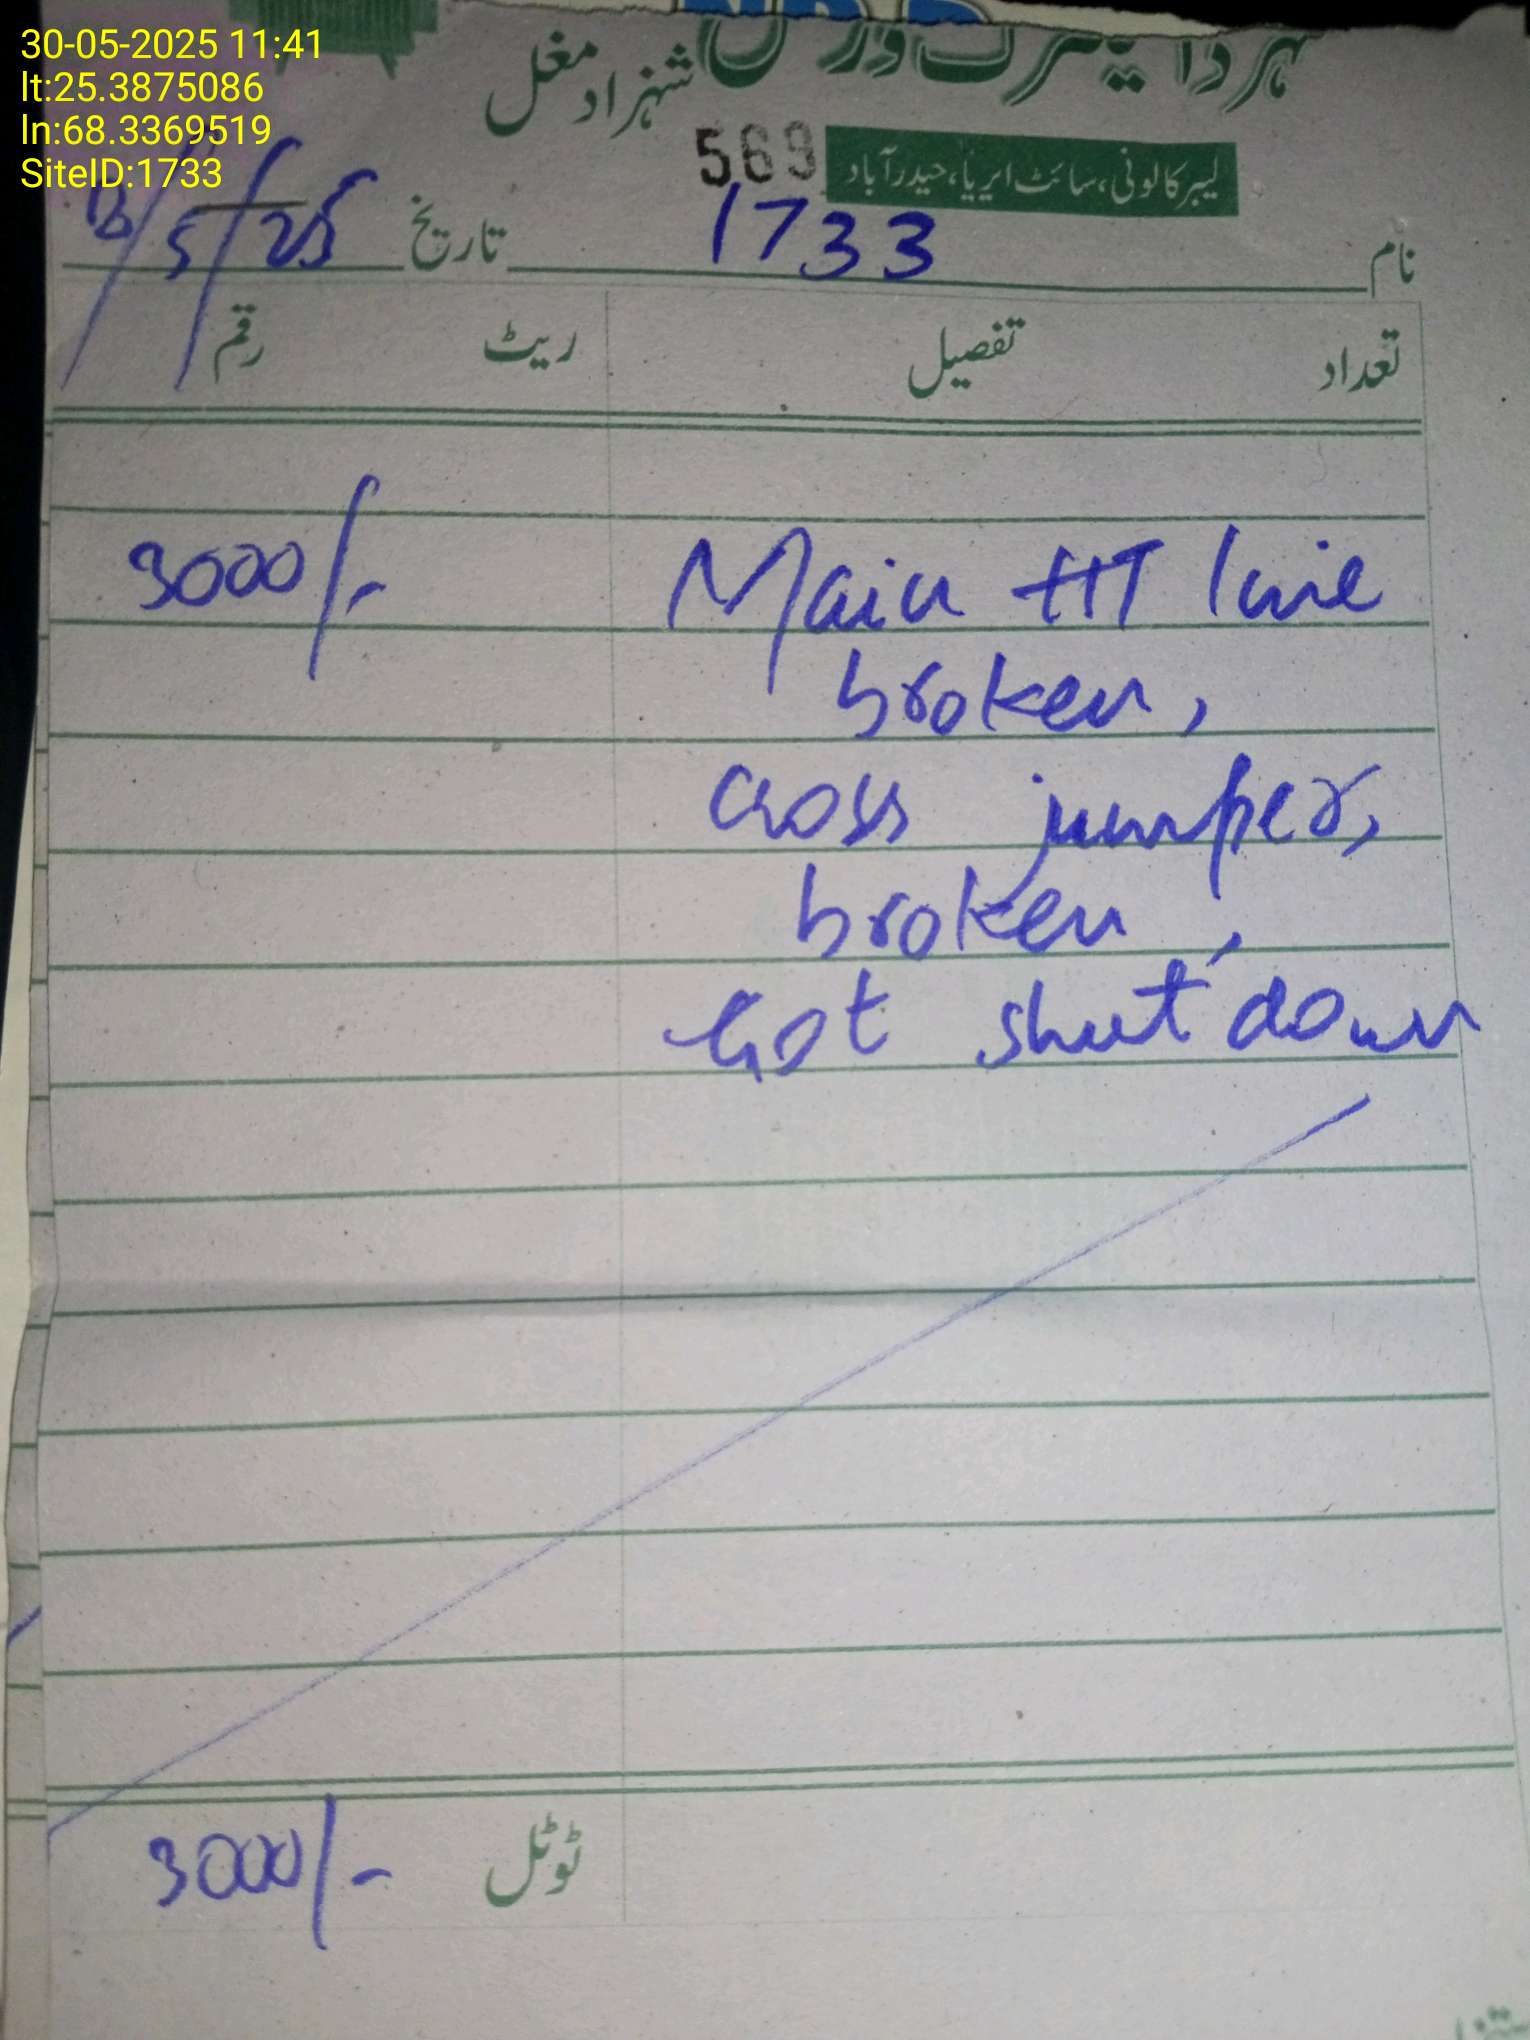 30-05-2025 11:41
lt:25.3875086
ln:68.3369519
SiteID:1733
شہزاد مغل
569
لیبر کالونی، سائٹ ایریا، حیدرآباد
نام 1733 تاریخ /5/25
تعداد تفصیل ریٹ رقم
Main HT line 3000/-
broken,
cross jumper,
broken,
Got shut down
ٹوٹل 3000/-